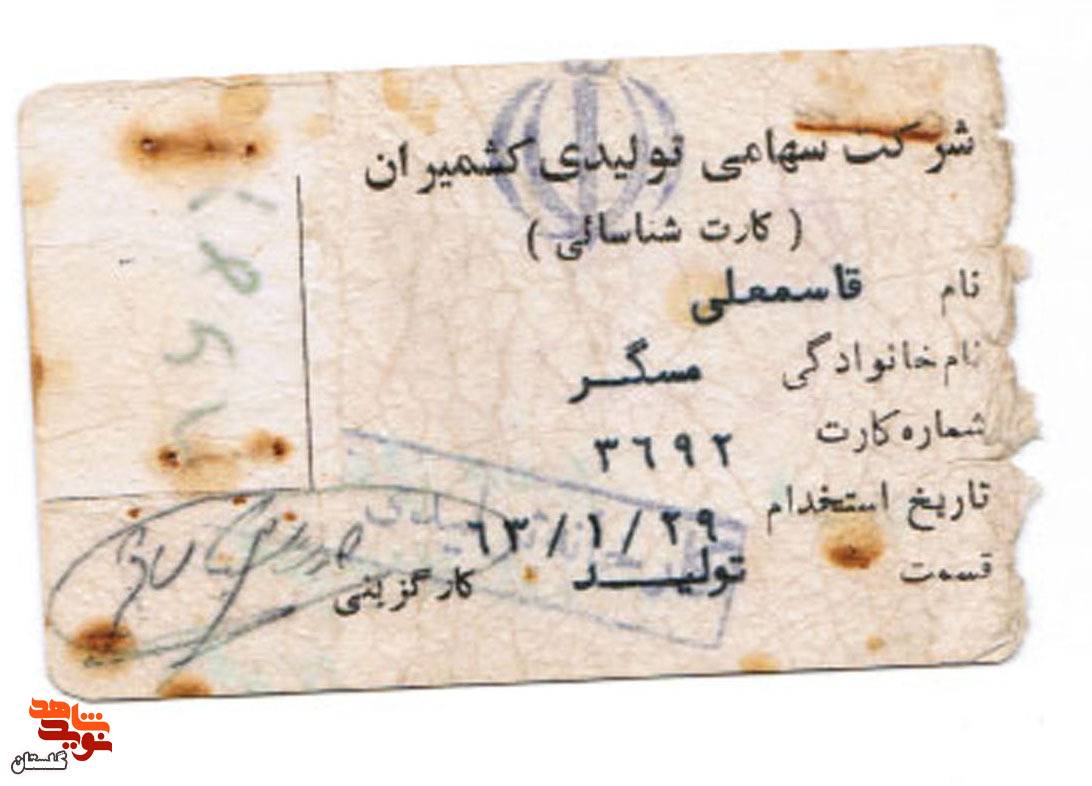 شرکت سهامی تولیدی کشمیران
( کارت شناسائی )
نام قاسمعلی
نام خانوادگی مسگر
شماره کارت ۳۶۹۲
تاریخ استخدام ۶۳/۱/۲۹
قسمت تولید
کارگزینی
نوید شاهد
گلستان